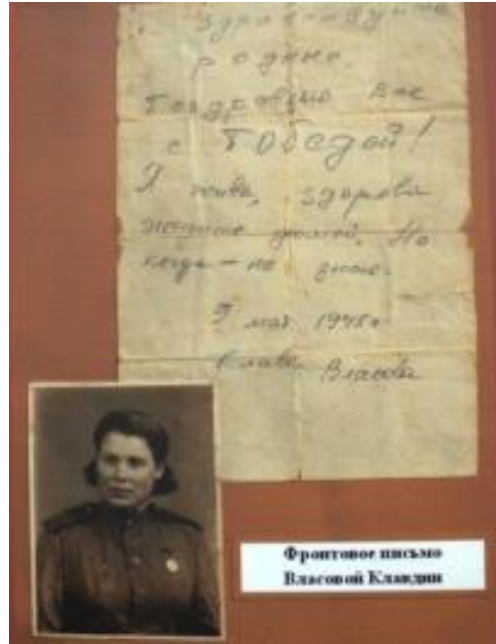 Здравствуйте
родные.
Поздравляю Вас
с Победой!
Я жива, здорова
ждите домой. Но
когда — не знаю.
9 мая 1945 г
Клава Власова
Фронтовое письмо
Власовой Клавдии